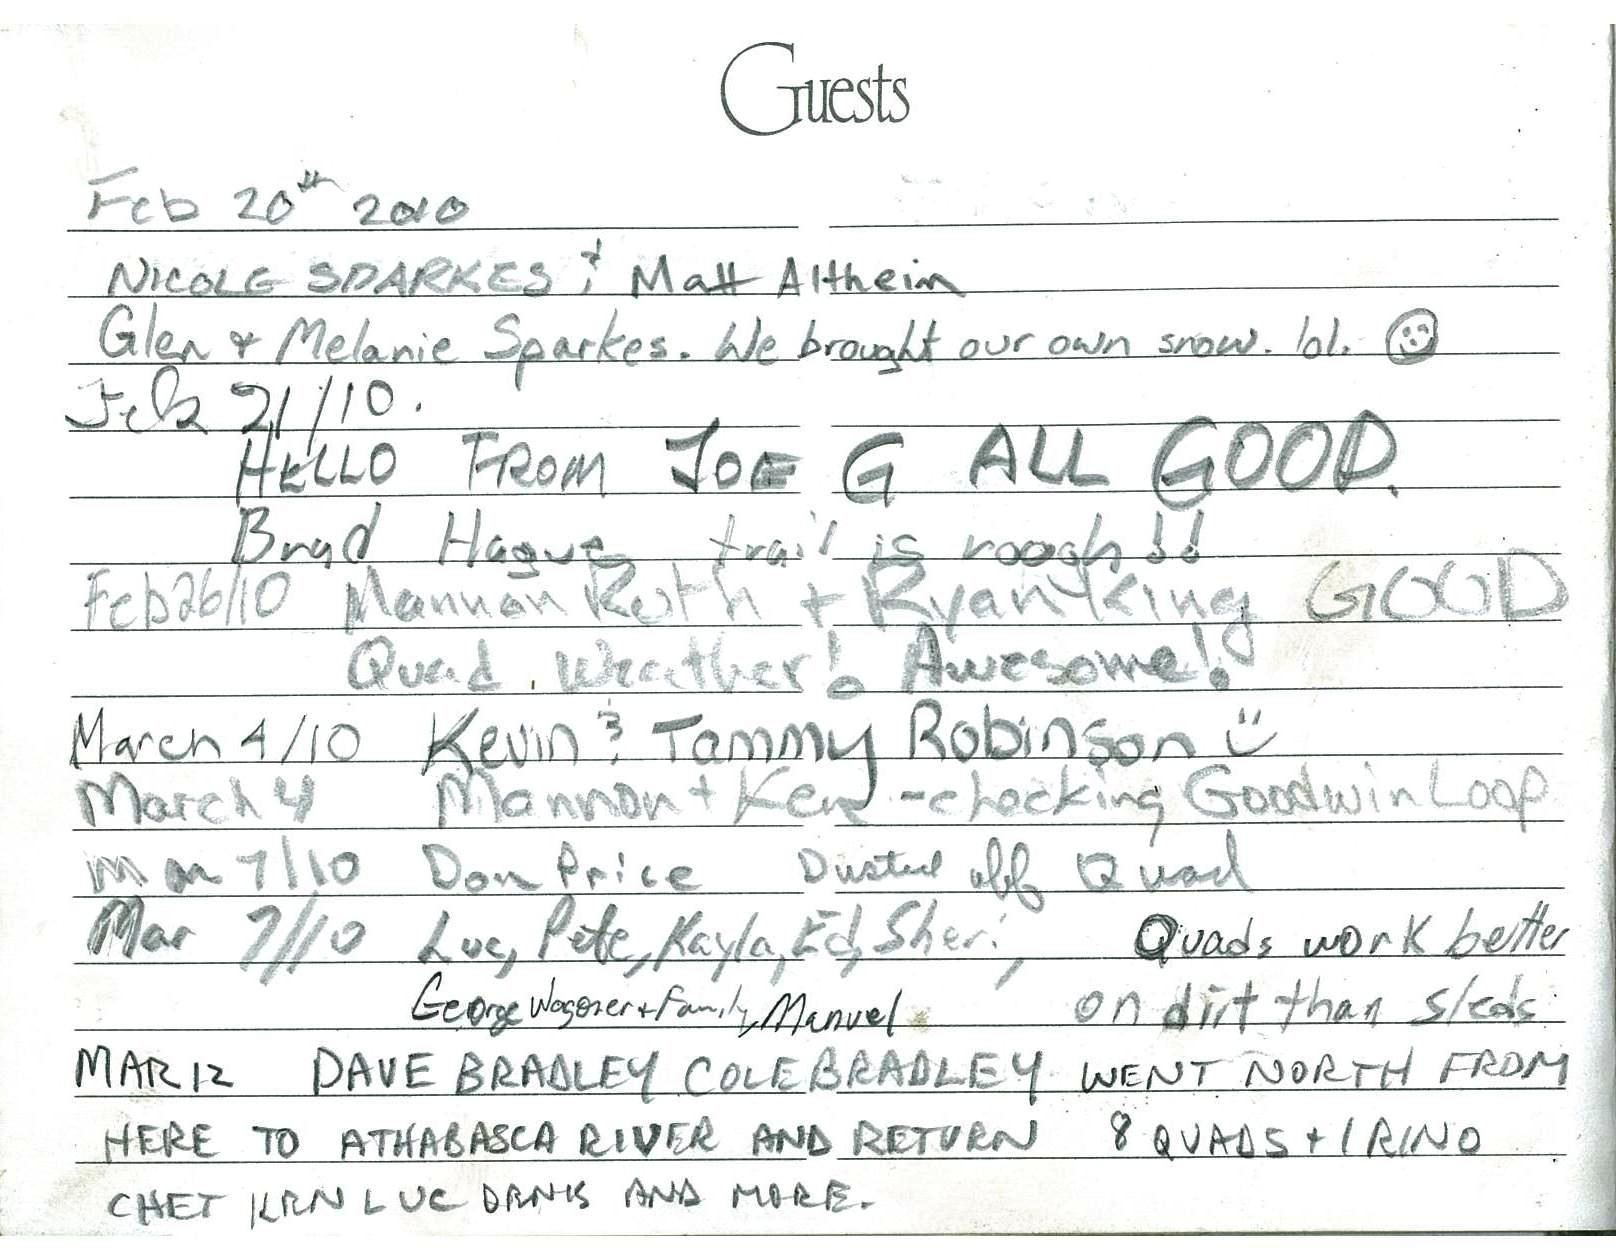 Guests
Feb 20th 2010
NICOLE SPARKES & Matt Altheim
Glen & Melanie Sparkes. We brought our own snow. lol. ☺
Feb 21/10.
HELLO FROM JOE G ALL GOOD.
Brad Hague trail is roogh!!
Feb 26/10 Mannon Ruth + Ryan King GOOD
Quad Weather! Awesome!
March 4/10 Kevin & Tammy Robinson ☺
March 4 Mannon + Ken - checking Goodwin Loop
Mar 7/10 Don Price Dusted off Quad
Mar 7/10 Luc, Pete, Kayla, Ed, Sheri, Quads work better
George Wagoner + Family, Manuel on dirt than sleds
MAR 12 DAVE BRADLEY COLE BRADLEY WENT NORTH FROM
HERE TO ATHABASCA RIVER AND RETURN 8 QUADS + 1 RINO
CHET LUC AND MORE.